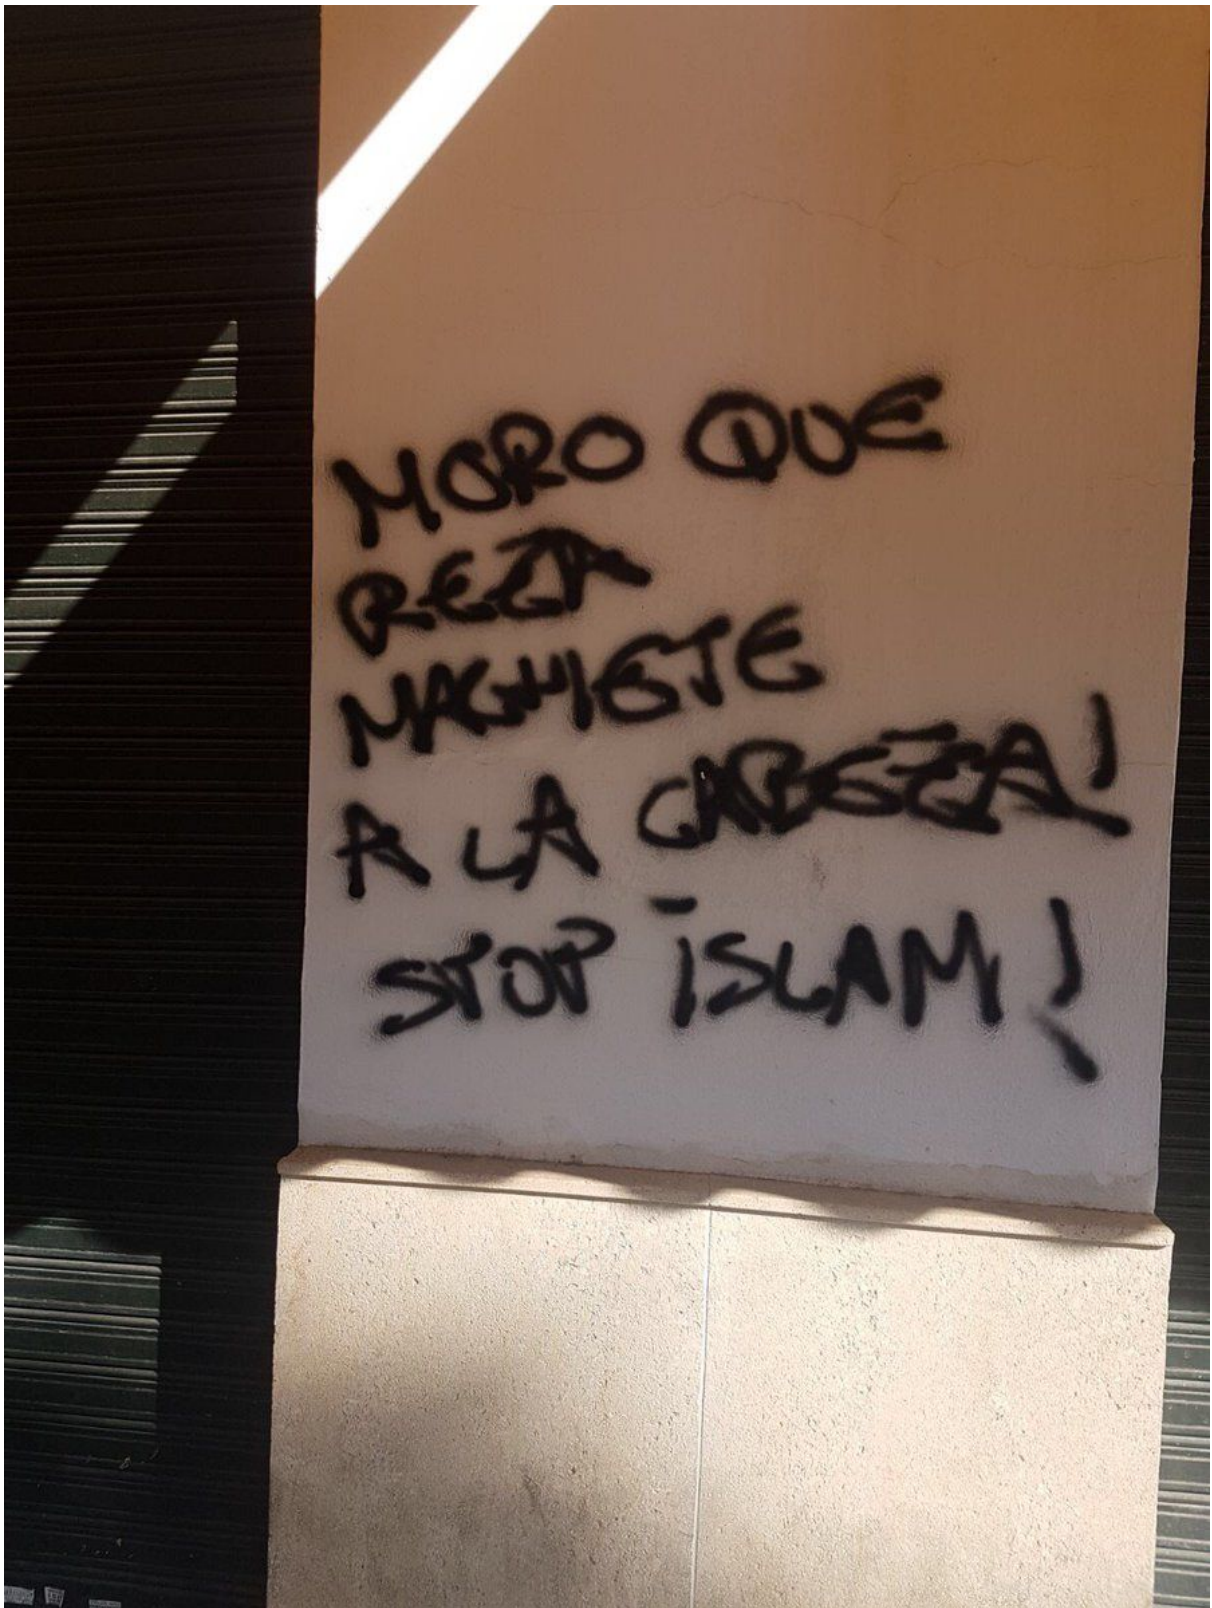 MORO QUE
REZA
MACHETE
A LA CABEZA!
STOP ISLAM!